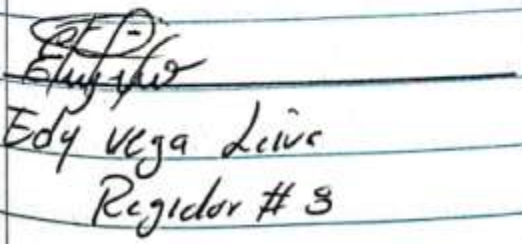 Edy vega Leiva
Regidor # 3